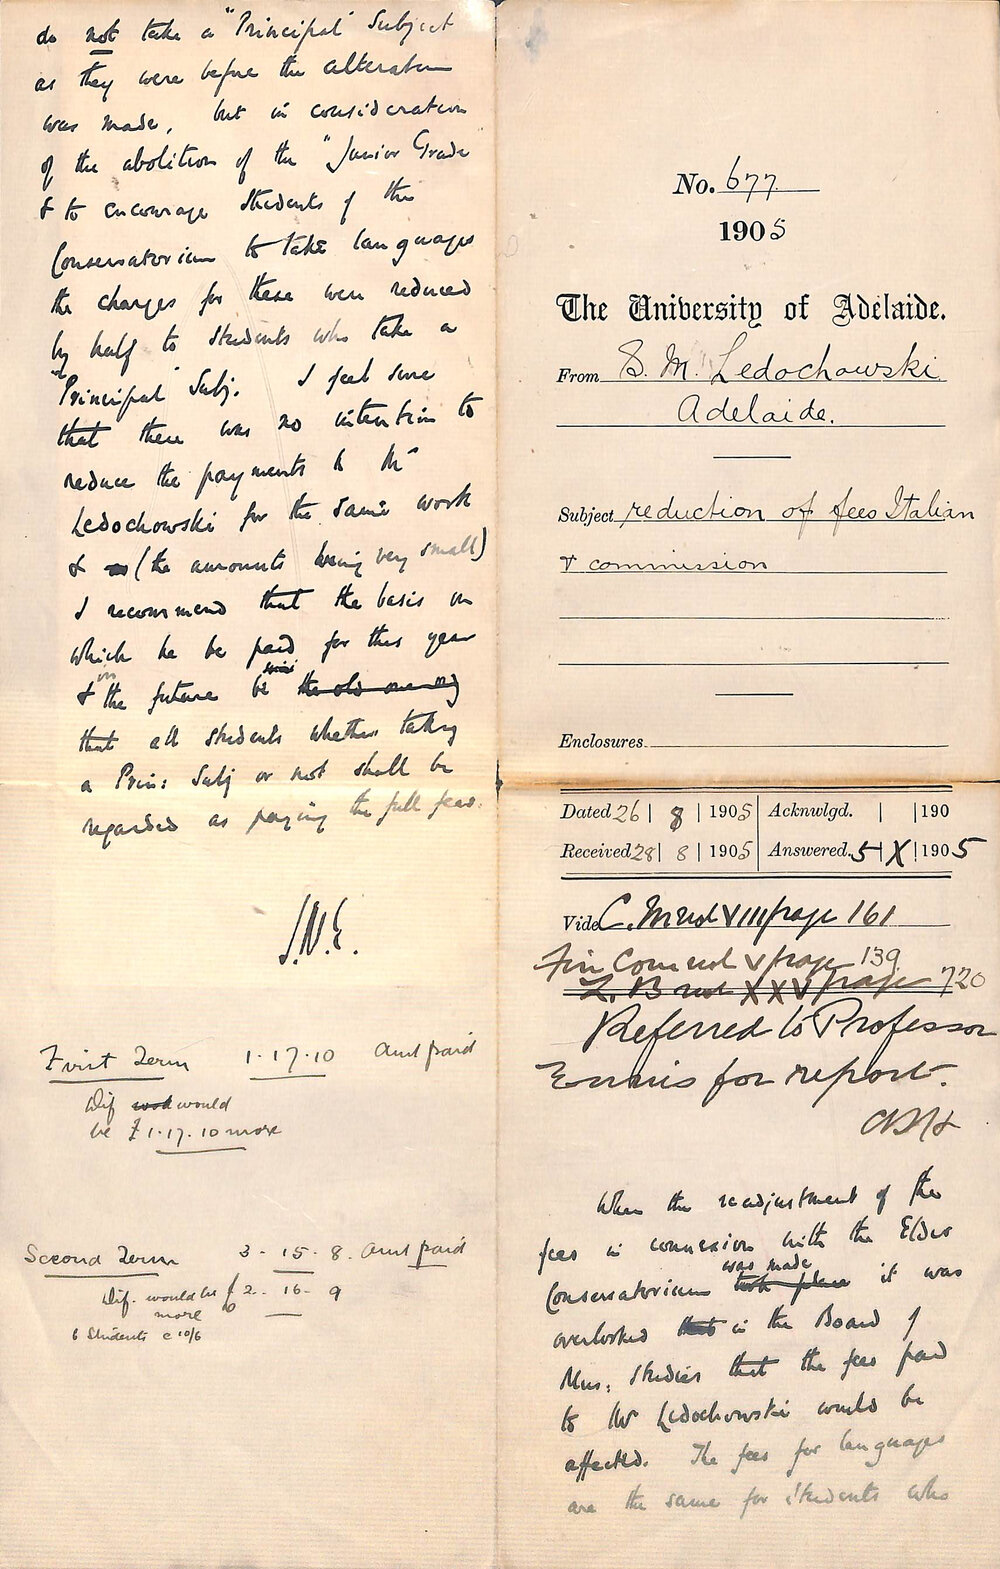 No. 677
1905
The University of Adelaide.
From S. M. Ledochowski
Adelaide.
Subject reduction of fees Italian
& commission
Enclosures
Dated 26 | 8 | 1905 Acknwlgd. | | 190
Received 28 | 8 | 1905 Answered. 5 | X | 1905
Vide C. M vol VIII page 161
Fin Com vol V page 139
L. B vol XXV page 720
Referred to Professor
Ennis for report.
When the readjustment of the
fees in connexion with the Elder
was made
Conservatorium took place it was
overlooked that in the Board of
Mus: Studies that the fees paid
to Mr Ledochowski would be
affected. The fees for languages
are the same for students who
do not take a "Principal" Subject
as they were before the alteration
was made, but in consideration
of the abolition of the "Junior Grade
& to encourage students of the
Conservatorium to take languages
the charges for these were reduced
by half to students who take a
"Principal" Subj. I feel sure
that there was no intention to
reduce the payments to Mr
Ledochowski for the same work
& (the amounts being very small)
I recommend that the basis on
which he be paid for this year
& in the future be the old one
that all students whether taking
a Prin: Subj or not shall be
regarded as paying the full fees.
J.N.E.
First Term 1.17.10 Amt paid
Dif would
be £1.17.10 more
Second Term 3-15-8 Amt paid
Dif. would be £2-16-9
more
6 Students @ 10/6